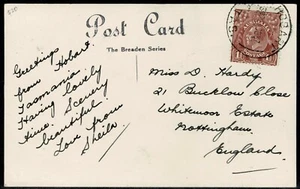 Post Card
The Breaden Series
Greetings
from Hobart.
Tasmania
Having lovely
time. Scenery
beautiful.
Love from
Sheila
Miss D. Hardy
21 Bucklow Close
Whitemoor Estate
Nottingham
England.